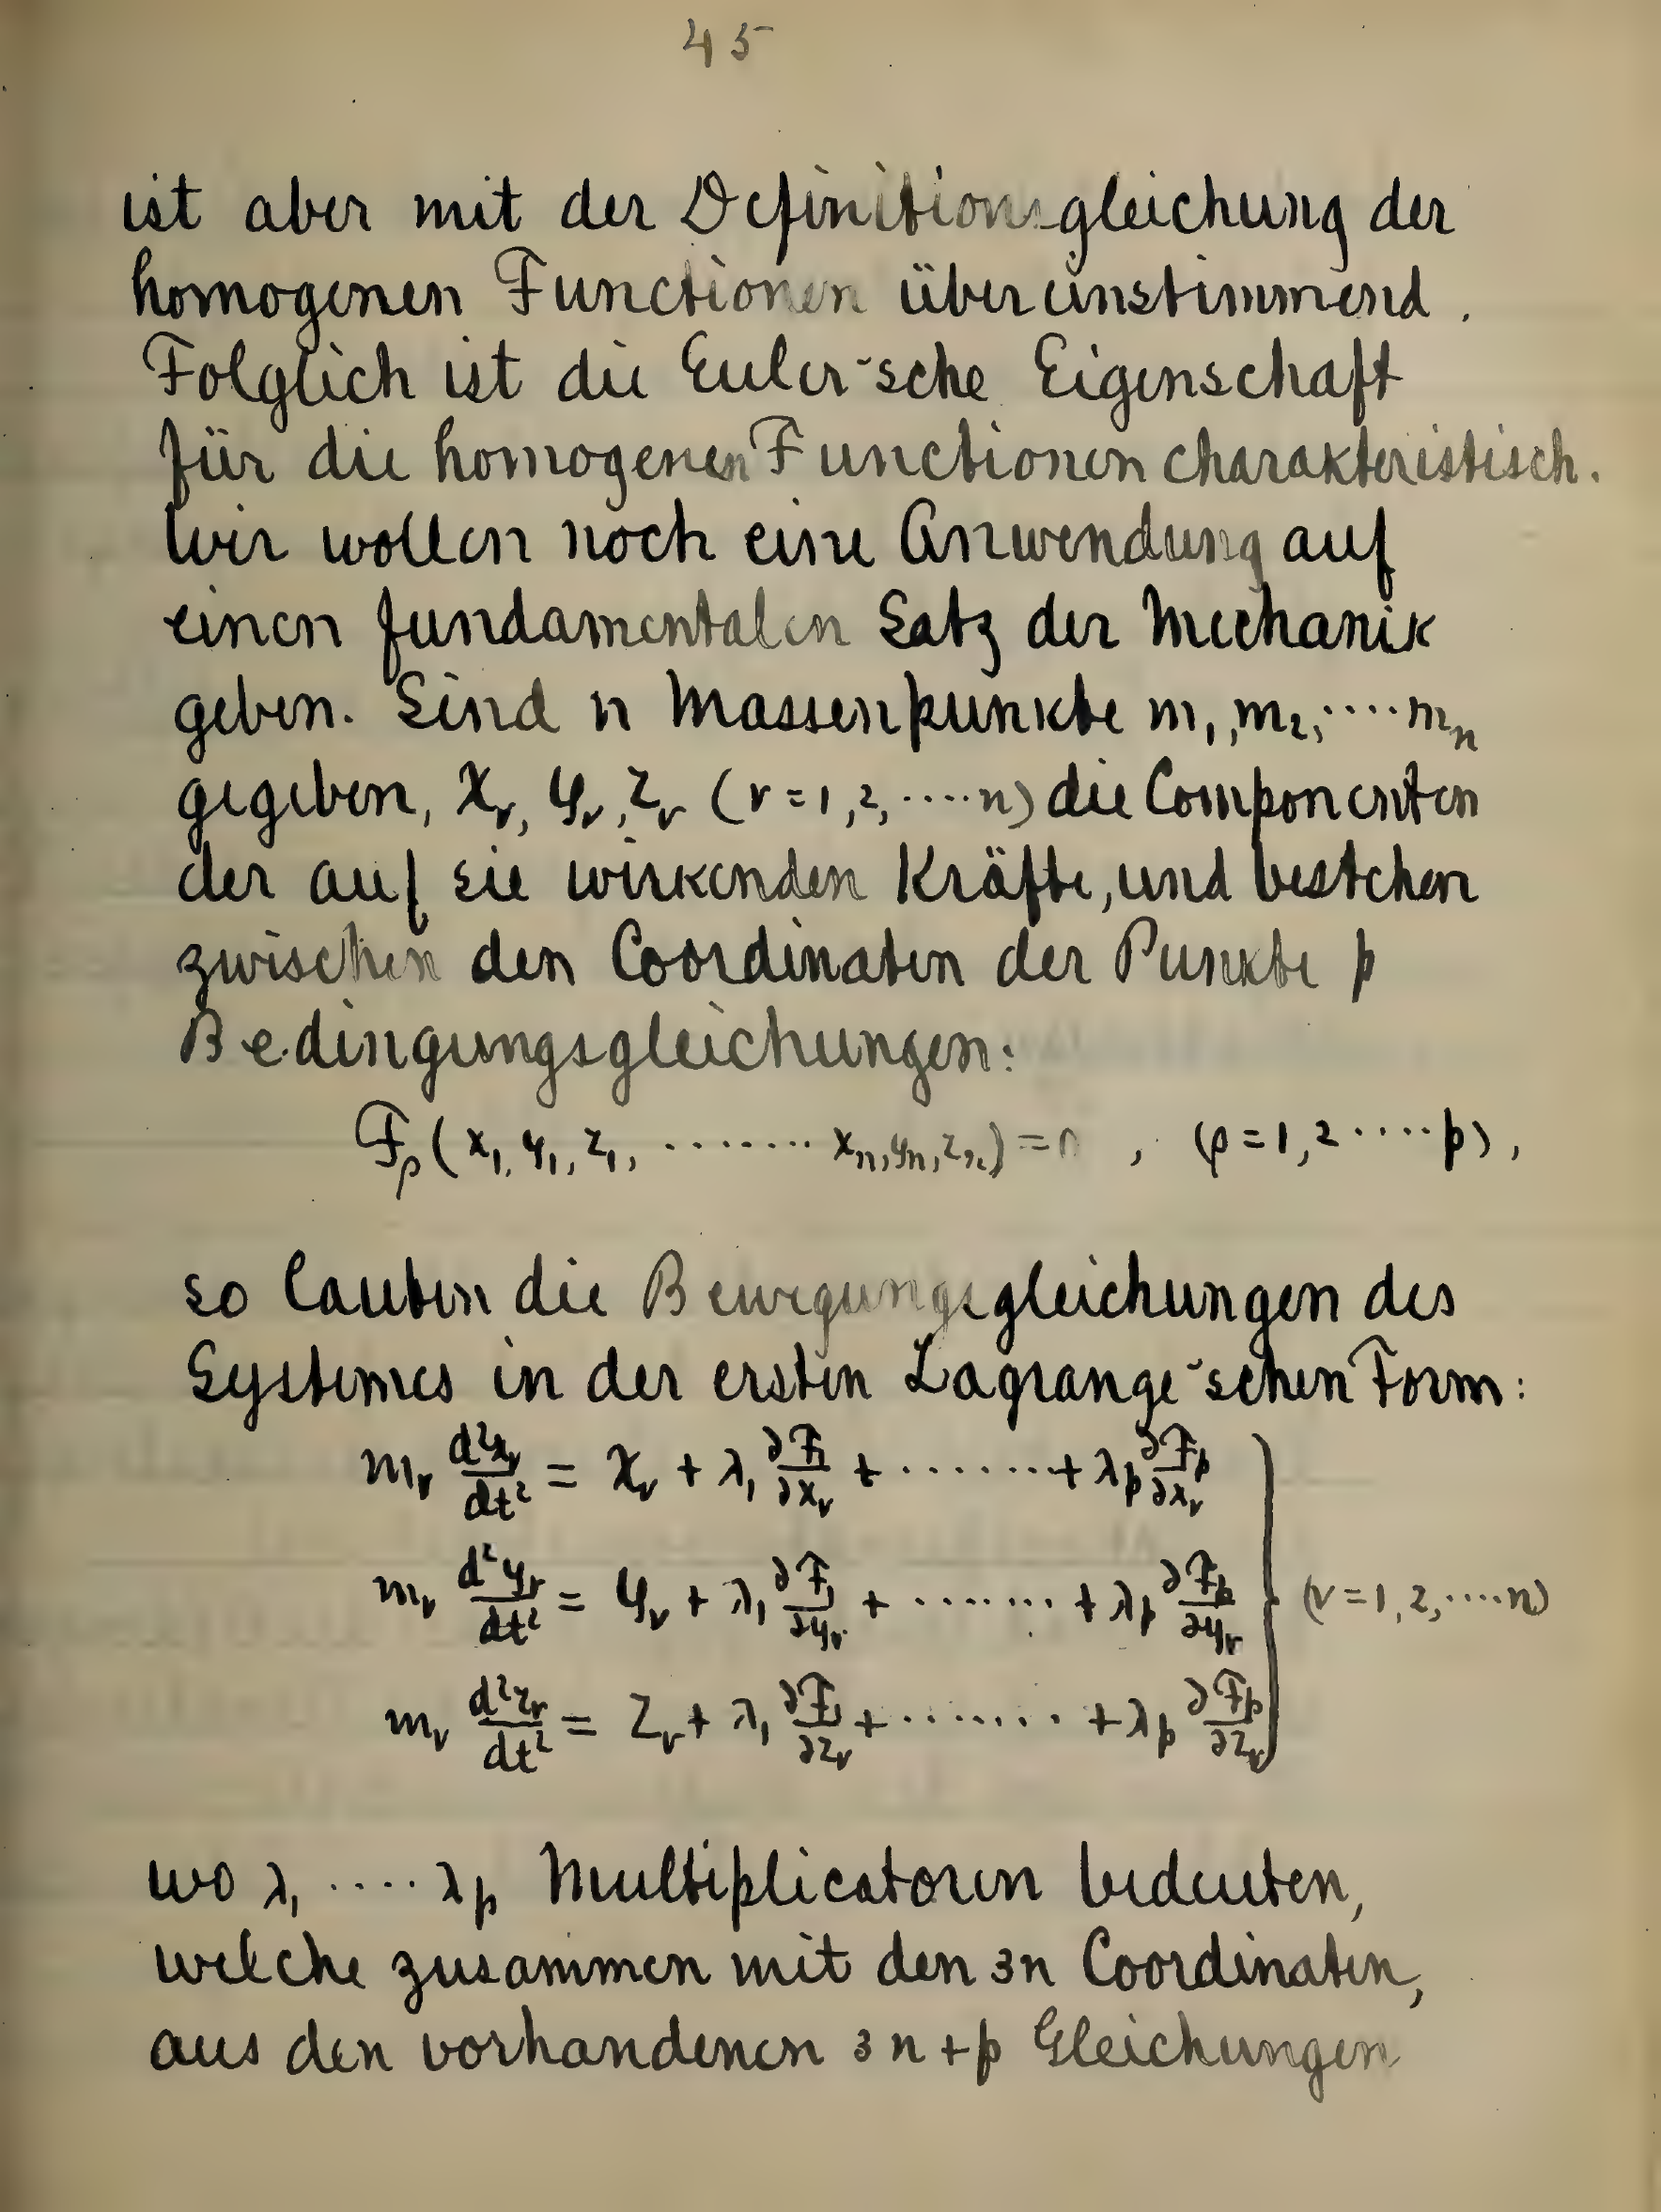 45
ist aber mit der Definitionsgleichung der
homogenen Functionen übereinstimmend.
Folglich ist die Euler'sche Eigenschaft
für die homogenen Functionen charakteristisch.
Wir wollen noch eine Anwendung auf
einen fundamentalen Satz der Mechanik
geben. Sind n Massenpunkte m₁, m₂, ···· mₙ
gegeben, Xᵥ, Yᵥ, Zᵥ (ν = 1, 2, ····· n) die Componenten
der auf sie wirkenden Kräfte, und bestehen
zwischen den Coordinaten der Punkte p
Bedingungsgleichungen:
F_ρ (x₁, y₁, z₁, ········ xₙ, yₙ, zₙ) = 0 , (ρ = 1, 2 ····· p),
so lauten die Bewegungsgleichungen des
Systemes in der ersten Lagrange'schen Form:
m_ν d²x_ν/dt² = X_ν + λ₁ ∂F₁/∂x_ν + ········ + λ_p ∂F_p/∂x_ν
m_ν d²y_ν/dt² = Y_ν + λ₁ ∂F₁/∂y_ν + ········ + λ_p ∂F_p/∂y_ν } (ν = 1, 2, ····· n)
m_ν d²z_ν/dt² = Z_ν + λ₁ ∂F₁/∂z_ν + ········ + λ_p ∂F_p/∂z_ν
wo λ₁ ····· λ_p Multiplicatoren bedeuten,
welche zusammen mit den 3n Coordinaten,
aus den vorhandenen 3n + p Gleichungen